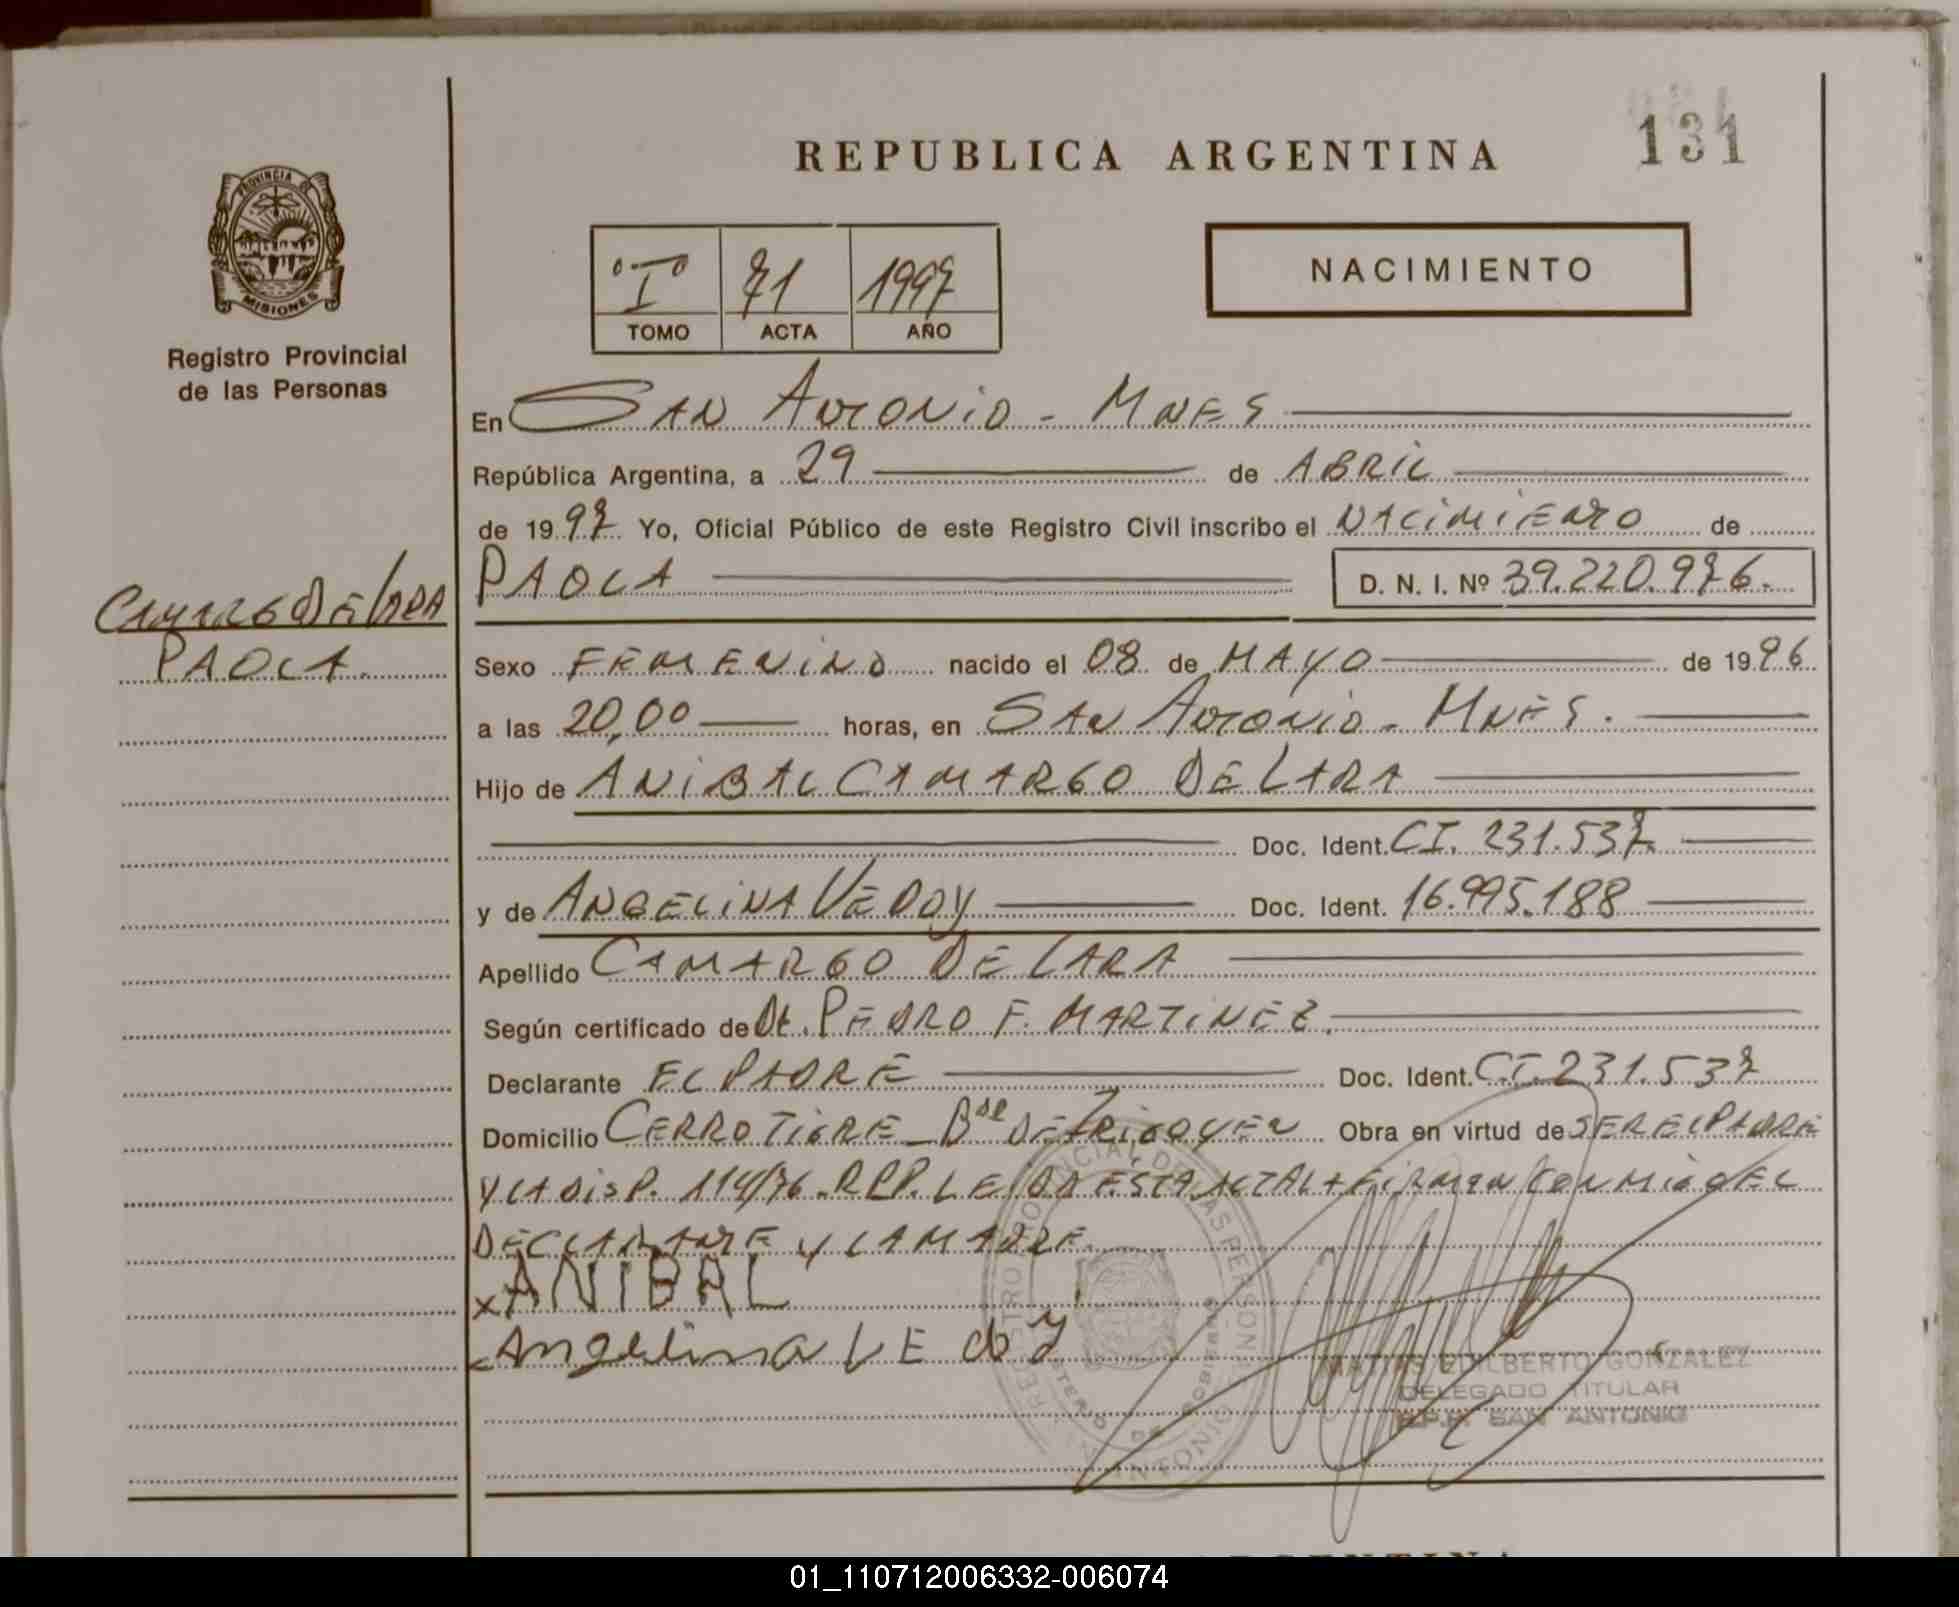 131
REPUBLICA ARGENTINA
PROVINCIA DE
MISIONES
Registro Provincial
de las Personas
"I" 71 1997
TOMO ACTA AÑO
NACIMIENTO
En SAN ANTONIO - MNES
República Argentina, a 29 de ABRIL
de 1997 Yo, Oficial Público de este Registro Civil inscribo el NACIMIENTO de
PAOLA D. N. I. Nº 39.220.976.
CAMARGO DE LARA
PAOLA
Sexo FEMENINO nacido el 08 de MAYO de 1996
a las 20,00 horas, en SAN ANTONIO - MNES.
Hijo de ANIBAL CAMARGO DE LARA
Doc. Ident. CI. 231.537
y de ANGELINA VEDOY Doc. Ident. 16.995.188
Apellido CAMARGO DE LARA
Según certificado de Dt. PEDRO F. MARTINEZ.
Declarante EL PADRE Doc. Ident. CI. 231.537
Domicilio CERRO TIGRE - Bdo DE IRIGOYEN Obra en virtud de SER EL PADRE
Y LA DISP. 114/76 - RPP. LEIDA ESTA ACTA LA FIRMAN CONMIGO EL
DECLARANTE Y LA MADRE.
x ANIBAL
Angelina VE do y
REGISTRO PROVINCIAL DE LAS PERSONAS
MATIAS EDILBERTO GONZALEZ
DELEGADO TITULAR
R.P.P. SAN ANTONIO
01_110712006332-006074